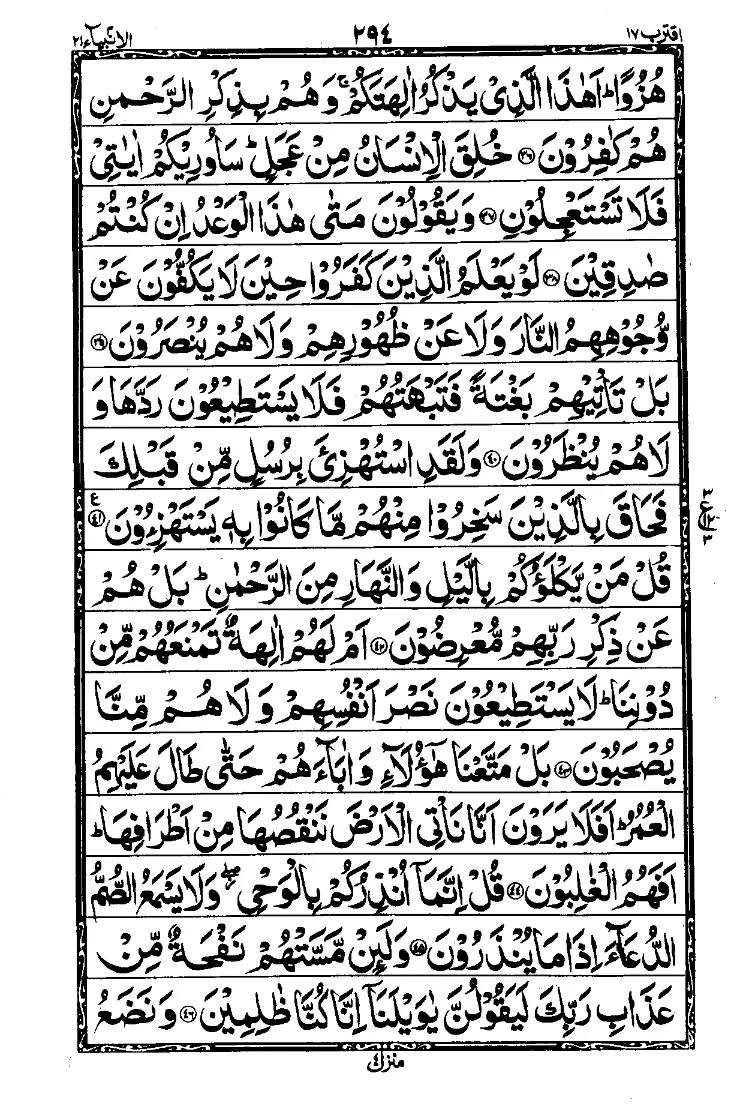 اقترب ١٧
٢٩٤
الانبیآء ٢١
هُزُوًا ؕ اَهٰذَا الَّذِیْ یَذْكُرُ اٰلِهَتَكُمْ ۚ وَ هُمْ بِذِكْرِ الرَّحْمٰنِ
هُمْ كٰفِرُوْنَ ﴿٣٦﴾ خُلِقَ الْاِنْسَانُ مِنْ عَجَلٍ ؕ سَاُورِیْكُمْ اٰیٰتِیْ
فَلَا تَسْتَعْجِلُوْنِ ﴿٣٧﴾ وَ یَقُوْلُوْنَ مَتٰی هٰذَا الْوَعْدُ اِنْ كُنْتُمْ
صٰدِقِیْنَ ﴿٣٨﴾ لَوْ یَعْلَمُ الَّذِیْنَ كَفَرُوْا حِیْنَ لَا یَكُفُّوْنَ عَنْ
وُّجُوْهِهِمُ النَّارَ وَ لَا عَنْ ظُهُوْرِهِمْ وَ لَا هُمْ یُنْصَرُوْنَ ﴿٣٩﴾
بَلْ تَاْتِیْهِمْ بَغْتَةً فَتَبْهَتُهُمْ فَلَا یَسْتَطِیْعُوْنَ رَدَّهَا وَ
لَا هُمْ یُنْظَرُوْنَ ﴿٤٠﴾ وَ لَقَدِ اسْتُهْزِئَ بِرُسُلٍ مِّنْ قَبْلِكَ
فَحَاقَ بِالَّذِیْنَ سَخِرُوْا مِنْهُمْ مَّا كَانُوْا بِهٖ یَسْتَهْزِءُوْنَ ﴿٤١﴾ ع
قُلْ مَنْ یَّكْلَؤُكُمْ بِالَّیْلِ وَ النَّهَارِ مِنَ الرَّحْمٰنِ ؕ بَلْ هُمْ
عَنْ ذِكْرِ رَبِّهِمْ مُّعْرِضُوْنَ ﴿٤٢﴾ اَمْ لَهُمْ اٰلِهَةٌ تَمْنَعُهُمْ مِّنْ
دُوْنِنَا ؕ لَا یَسْتَطِیْعُوْنَ نَصْرَ اَنْفُسِهِمْ وَ لَا هُمْ مِّنَّا
یُصْحَبُوْنَ ﴿٤٣﴾ بَلْ مَتَّعْنَا هٰۤؤُلَآءِ وَ اٰبَآءَهُمْ حَتّٰی طَالَ عَلَیْهِمُ
الْعُمُرُ ؕ اَفَلَا یَرَوْنَ اَنَّا نَاْتِی الْاَرْضَ نَنْقُصُهَا مِنْ اَطْرَافِهَا ؕ
اَفَهُمُ الْغٰلِبُوْنَ ﴿٤٤﴾ قُلْ اِنَّمَاۤ اُنْذِرُكُمْ بِالْوَحْیِ ۖ وَ لَا یَسْمَعُ الصُّمُّ
الدُّعَآءَ اِذَا مَا یُنْذَرُوْنَ ﴿٤٥﴾ وَ لَئِنْ مَّسَّتْهُمْ نَفْحَةٌ مِّنْ
عَذَابِ رَبِّكَ لَیَقُوْلُنَّ یٰوَیْلَنَاۤ اِنَّا كُنَّا ظٰلِمِیْنَ ﴿٤٦﴾ وَ نَضَعُ
٣
ع ١٢
٣
منزل ٤